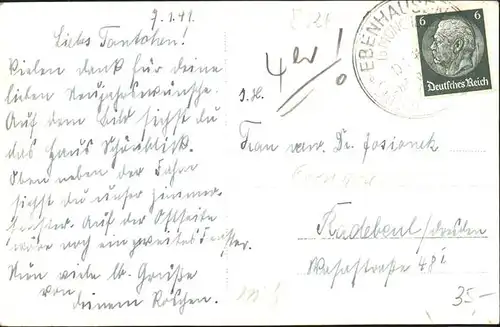 7.1.41.
Liebs Tantchen!
Vielen Dank für deine
lieben Neujahrswünsche.
Auf dem Bild siehst du
das Haus Schönblick.
Oben neben der Fahne
siehst du unser Zimmer-
fenster. Auf der Ostseite
wäre noch ein zweites Fenster.
Nun viele lb. Grüße
von
deinem Röschen.
EBENHAUSEN
6 6
Deutsches Reich
Frau verw. Dr. Josionek
Radebeul/Dresden
35.-